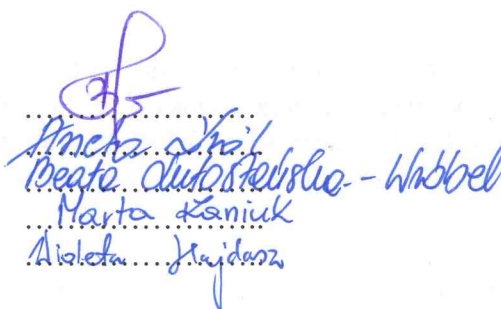 Aneta Król
Beata Lutostańska-Wróbel
Marta Kaniuk
Wioleta Hajdasz